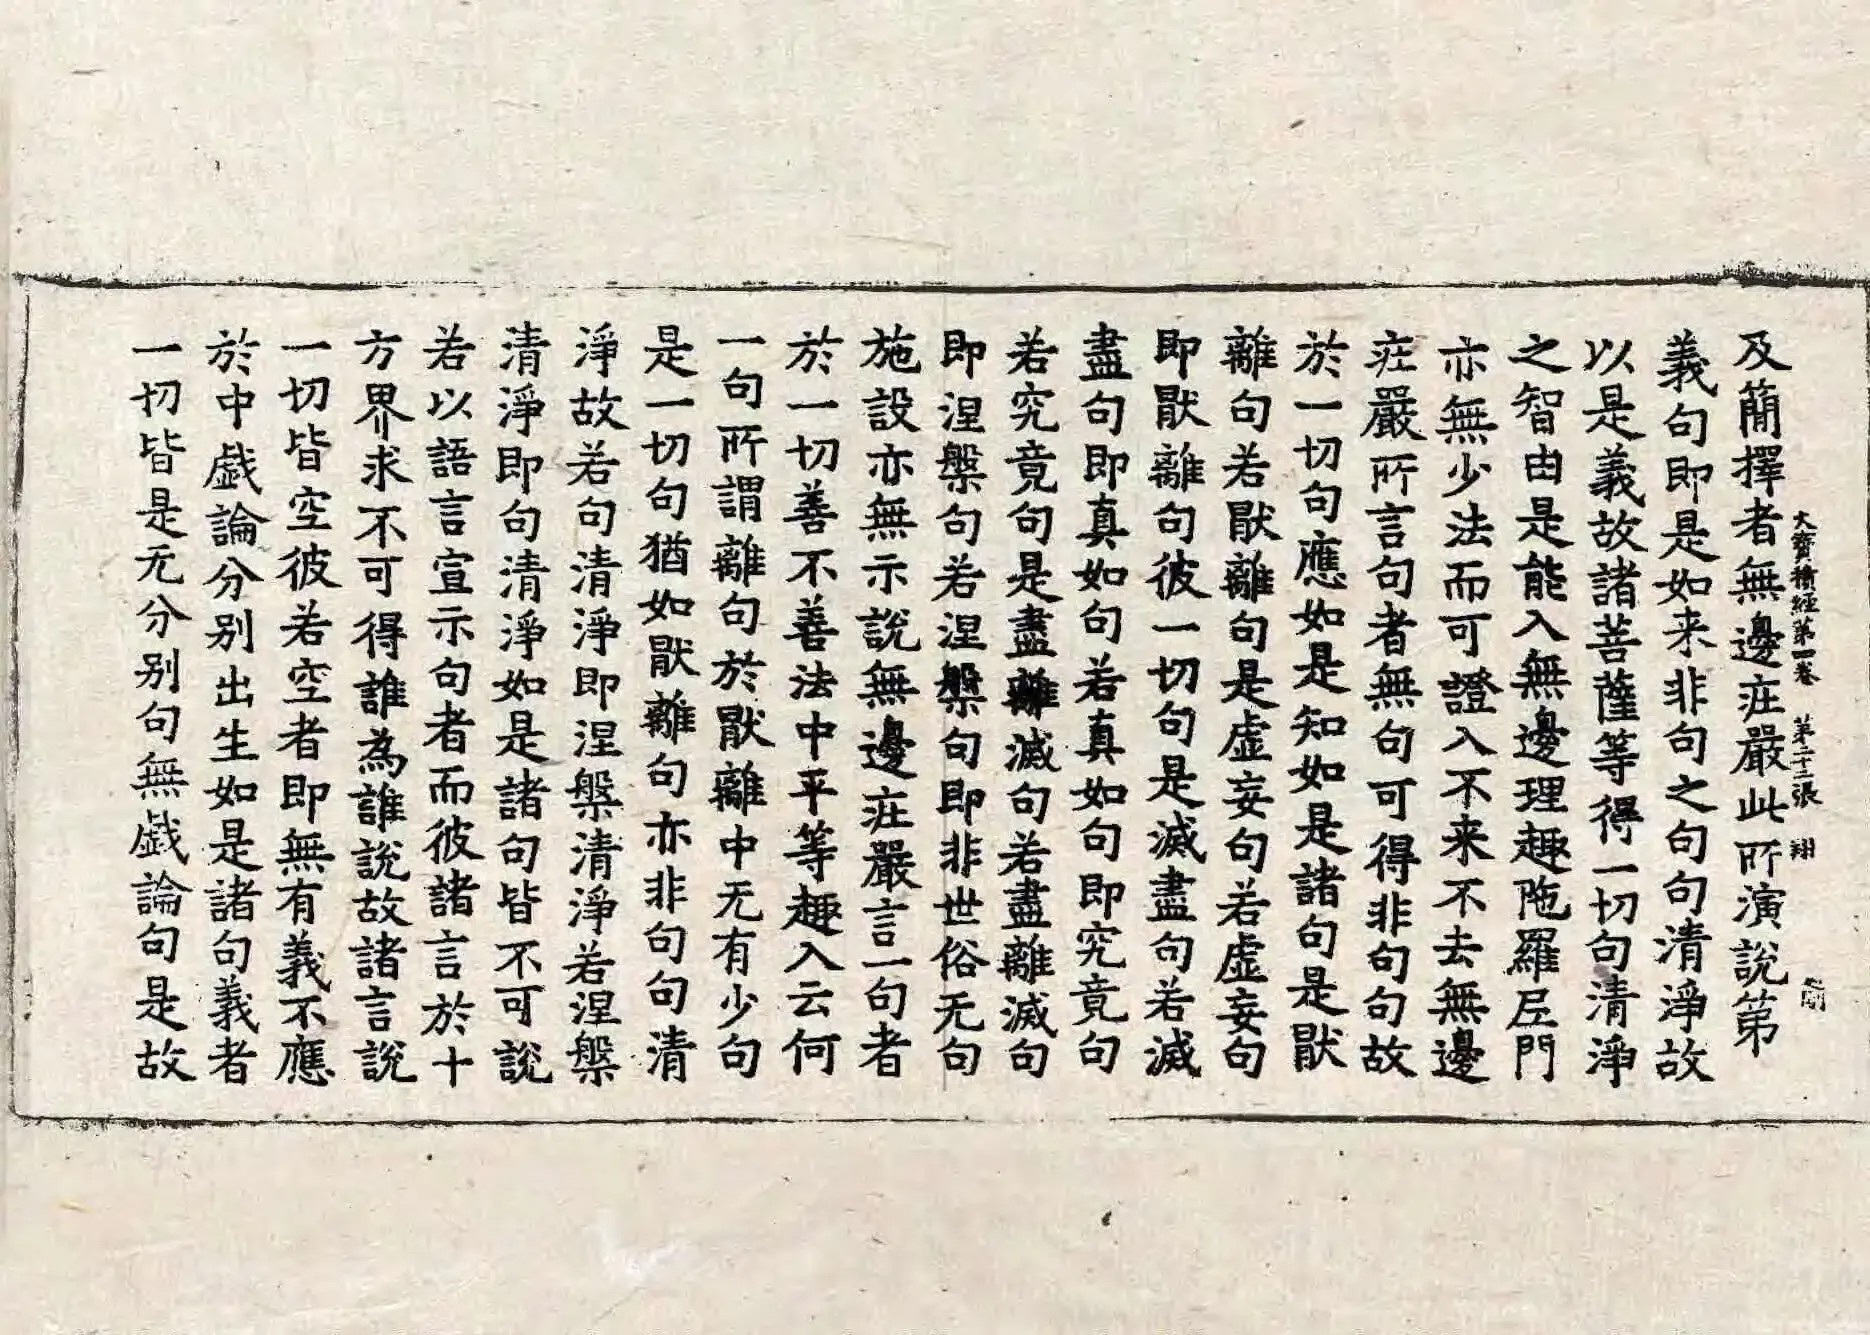 大寶積經第一卷　第二十二張　翔
及蕳擇者無邊庄嚴此所演說第
義句即是如来非句之句句清淨故
以是義故諸菩薩等得一切句清淨
之智由是能入無邊理趣陁羅尼門
亦無少法而可證入不来不去無邊
庄嚴所言句者無句可得非句句故
於一切句應如是知如是諸句是猒
離句若猒離句是虛妄句若虛妄句
即猒離句彼一切句是滅盡句若滅
盡句即真如句若真如句即究竟句
若究竟句是盡離滅句若盡離滅句
即涅槃句若涅槃句即非世俗无句
施設亦無示說無邊庄嚴言一句者
於一切善不善法中平等趣入云何
一句所謂離句於猒離中无有少句
是一切句猶如猒離句亦非句句清
淨故若句清淨即涅槃清淨若涅槃
清淨即句清淨如是諸句皆不可說
若以語言宣示句者而彼諸言於十
方界求不可得誰為誰說故諸言說
一切皆空彼若空者即無有義不應
於中戯論分别出生如是諸句義者
一切皆是无分别句無戯論句是故